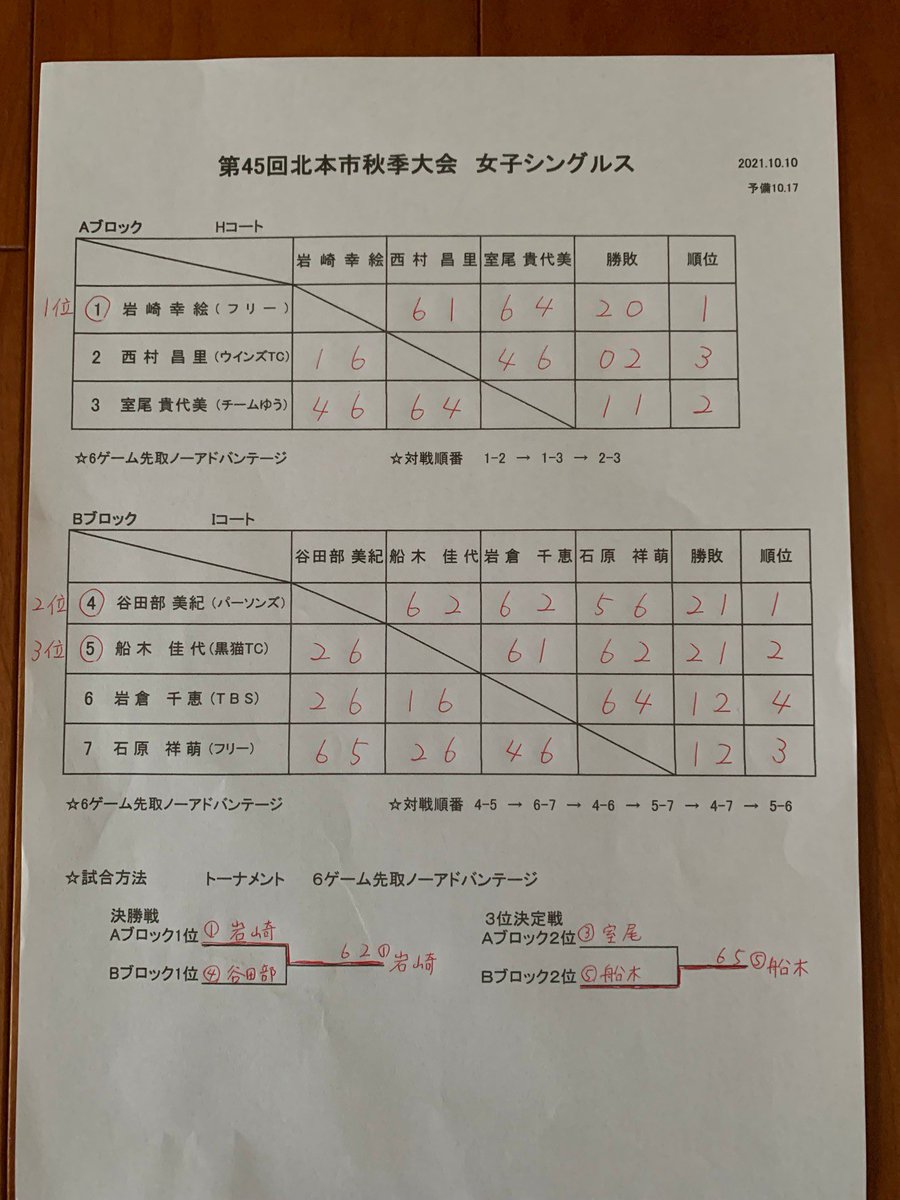 第45回北本市秋季大会 女子シングルス 2021.10.10
予備10.17
Aブロック Hコート
岩崎 幸絵 西村 昌里 室尾 貴代美 勝敗 順位
1位 ① 岩崎 幸絵 (フリー) 6 1 6 4 2 0 1
2 西村 昌里 (ウインズTC) 1 6 4 6 0 2 3
3 室尾 貴代美 (チームゆう) 4 6 6 4 1 1 2
☆6ゲーム先取ノーアドバンテージ ☆対戦順番 1-2 → 1-3 → 2-3
Bブロック Iコート
谷田部 美紀 船木 佳代 岩倉 千恵 石原 祥萌 勝敗 順位
2位 ④ 谷田部 美紀 (パーソンズ) 6 2 6 2 5 6 2 1 1
3位 ⑤ 船木 佳代 (黒猫TC) 2 6 6 1 6 2 2 1 2
6 岩倉 千恵 (TBS) 2 6 1 6 6 4 1 2 4
7 石原 祥萌 (フリー) 6 5 2 6 4 6 1 2 3
☆6ゲーム先取ノーアドバンテージ ☆対戦順番 4-5 → 6-7 → 4-6 → 5-7 → 4-7 → 5-6
☆試合方法 トーナメント 6ゲーム先取ノーアドバンテージ
決勝戦 3位決定戦
Aブロック1位 ① 岩崎 Aブロック2位 ③ 室尾
6 2 ① 岩崎 6 5 ⑤ 船木
Bブロック1位 ④ 谷田部 Bブロック2位 ⑤ 船木